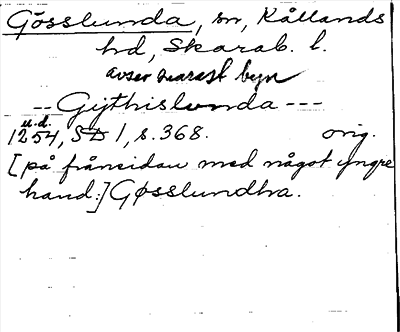 Gösslunda, sn, Kållands
hd, Skarab. l.
avser snarast byn
-- Gythislunda ---
u.d.
1254, SD 1, s. 368. orig.
[på frånsidan med något yngre
hand:] Gøsslundha.